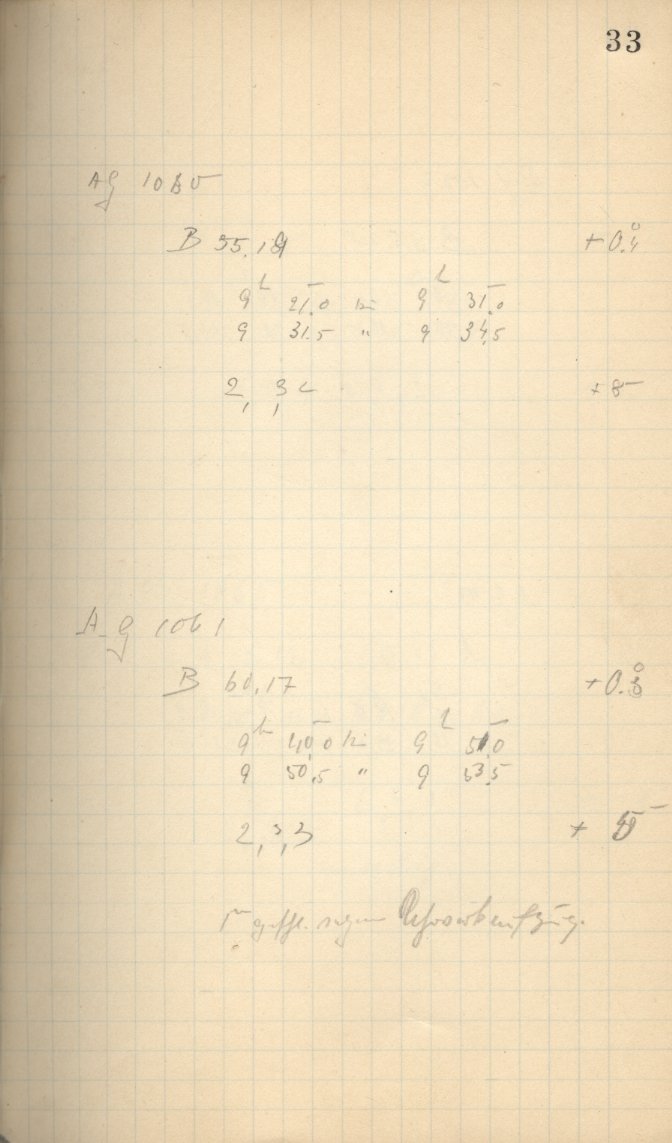 33
AG 1060
B 55.19 +0.°4
9h 21.0 bis 9h 31.0
9 31.5 " 9 34.5
2, 3, +8
AG 1061
B 60.17 +0.°3
9h 40.0 bis 9h 50.0
9 50.5 " 9 53.5
2, 3, 3 +
Uhrwerkaufzug.